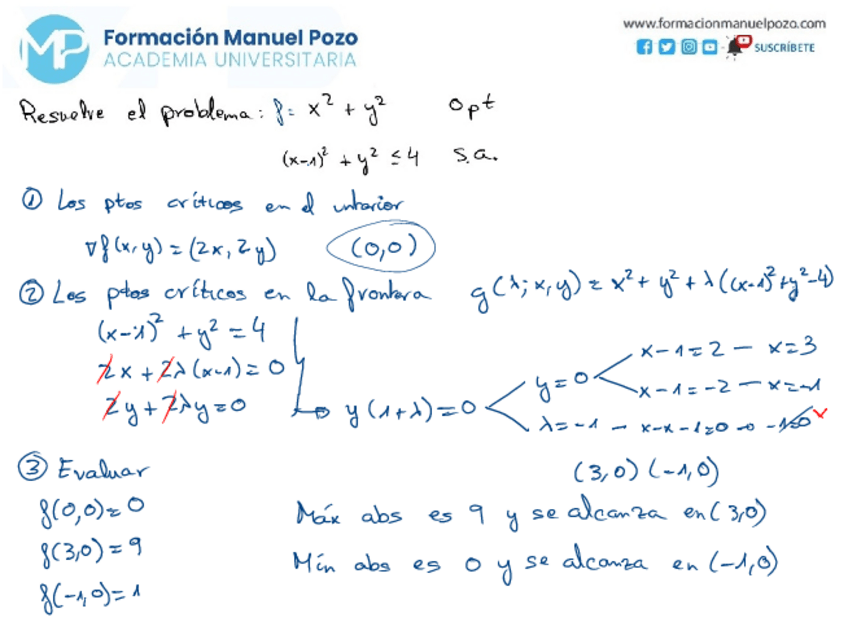 www.formacionmanuelpozo.com
MP Formación Manuel Pozo
ACADEMIA UNIVERSITARIA
SUSCRÍBETE
Resuelve el problema: f= x² + y² Opt
(x-1)² + y² ≤ 4 s.a.
① Los ptos críticos en el interior
∇f(x,y) = (2x, 2y) (0,0)
② Los ptos críticos en la frontera g(λ; x, y) = x² + y² + λ((x-1)² + y² - 4)
(x-1)² + y² = 4
2x + 2λ(x-1) = 0
2y + 2λy = 0
y(1+λ) = 0
y = 0
x-1 = 2 – x = 3
x-1 = -2 – x = -1
λ = -1 – x-x-1=0 → -1=0 x
(3,0) (-1,0)
③ Evaluar
f(0,0) = 0
f(3,0) = 9
f(-1,0) = 1
Máx abs es 9 y se alcanza en (3,0)
Mín abs es 0 y se alcanza en (-1,0)